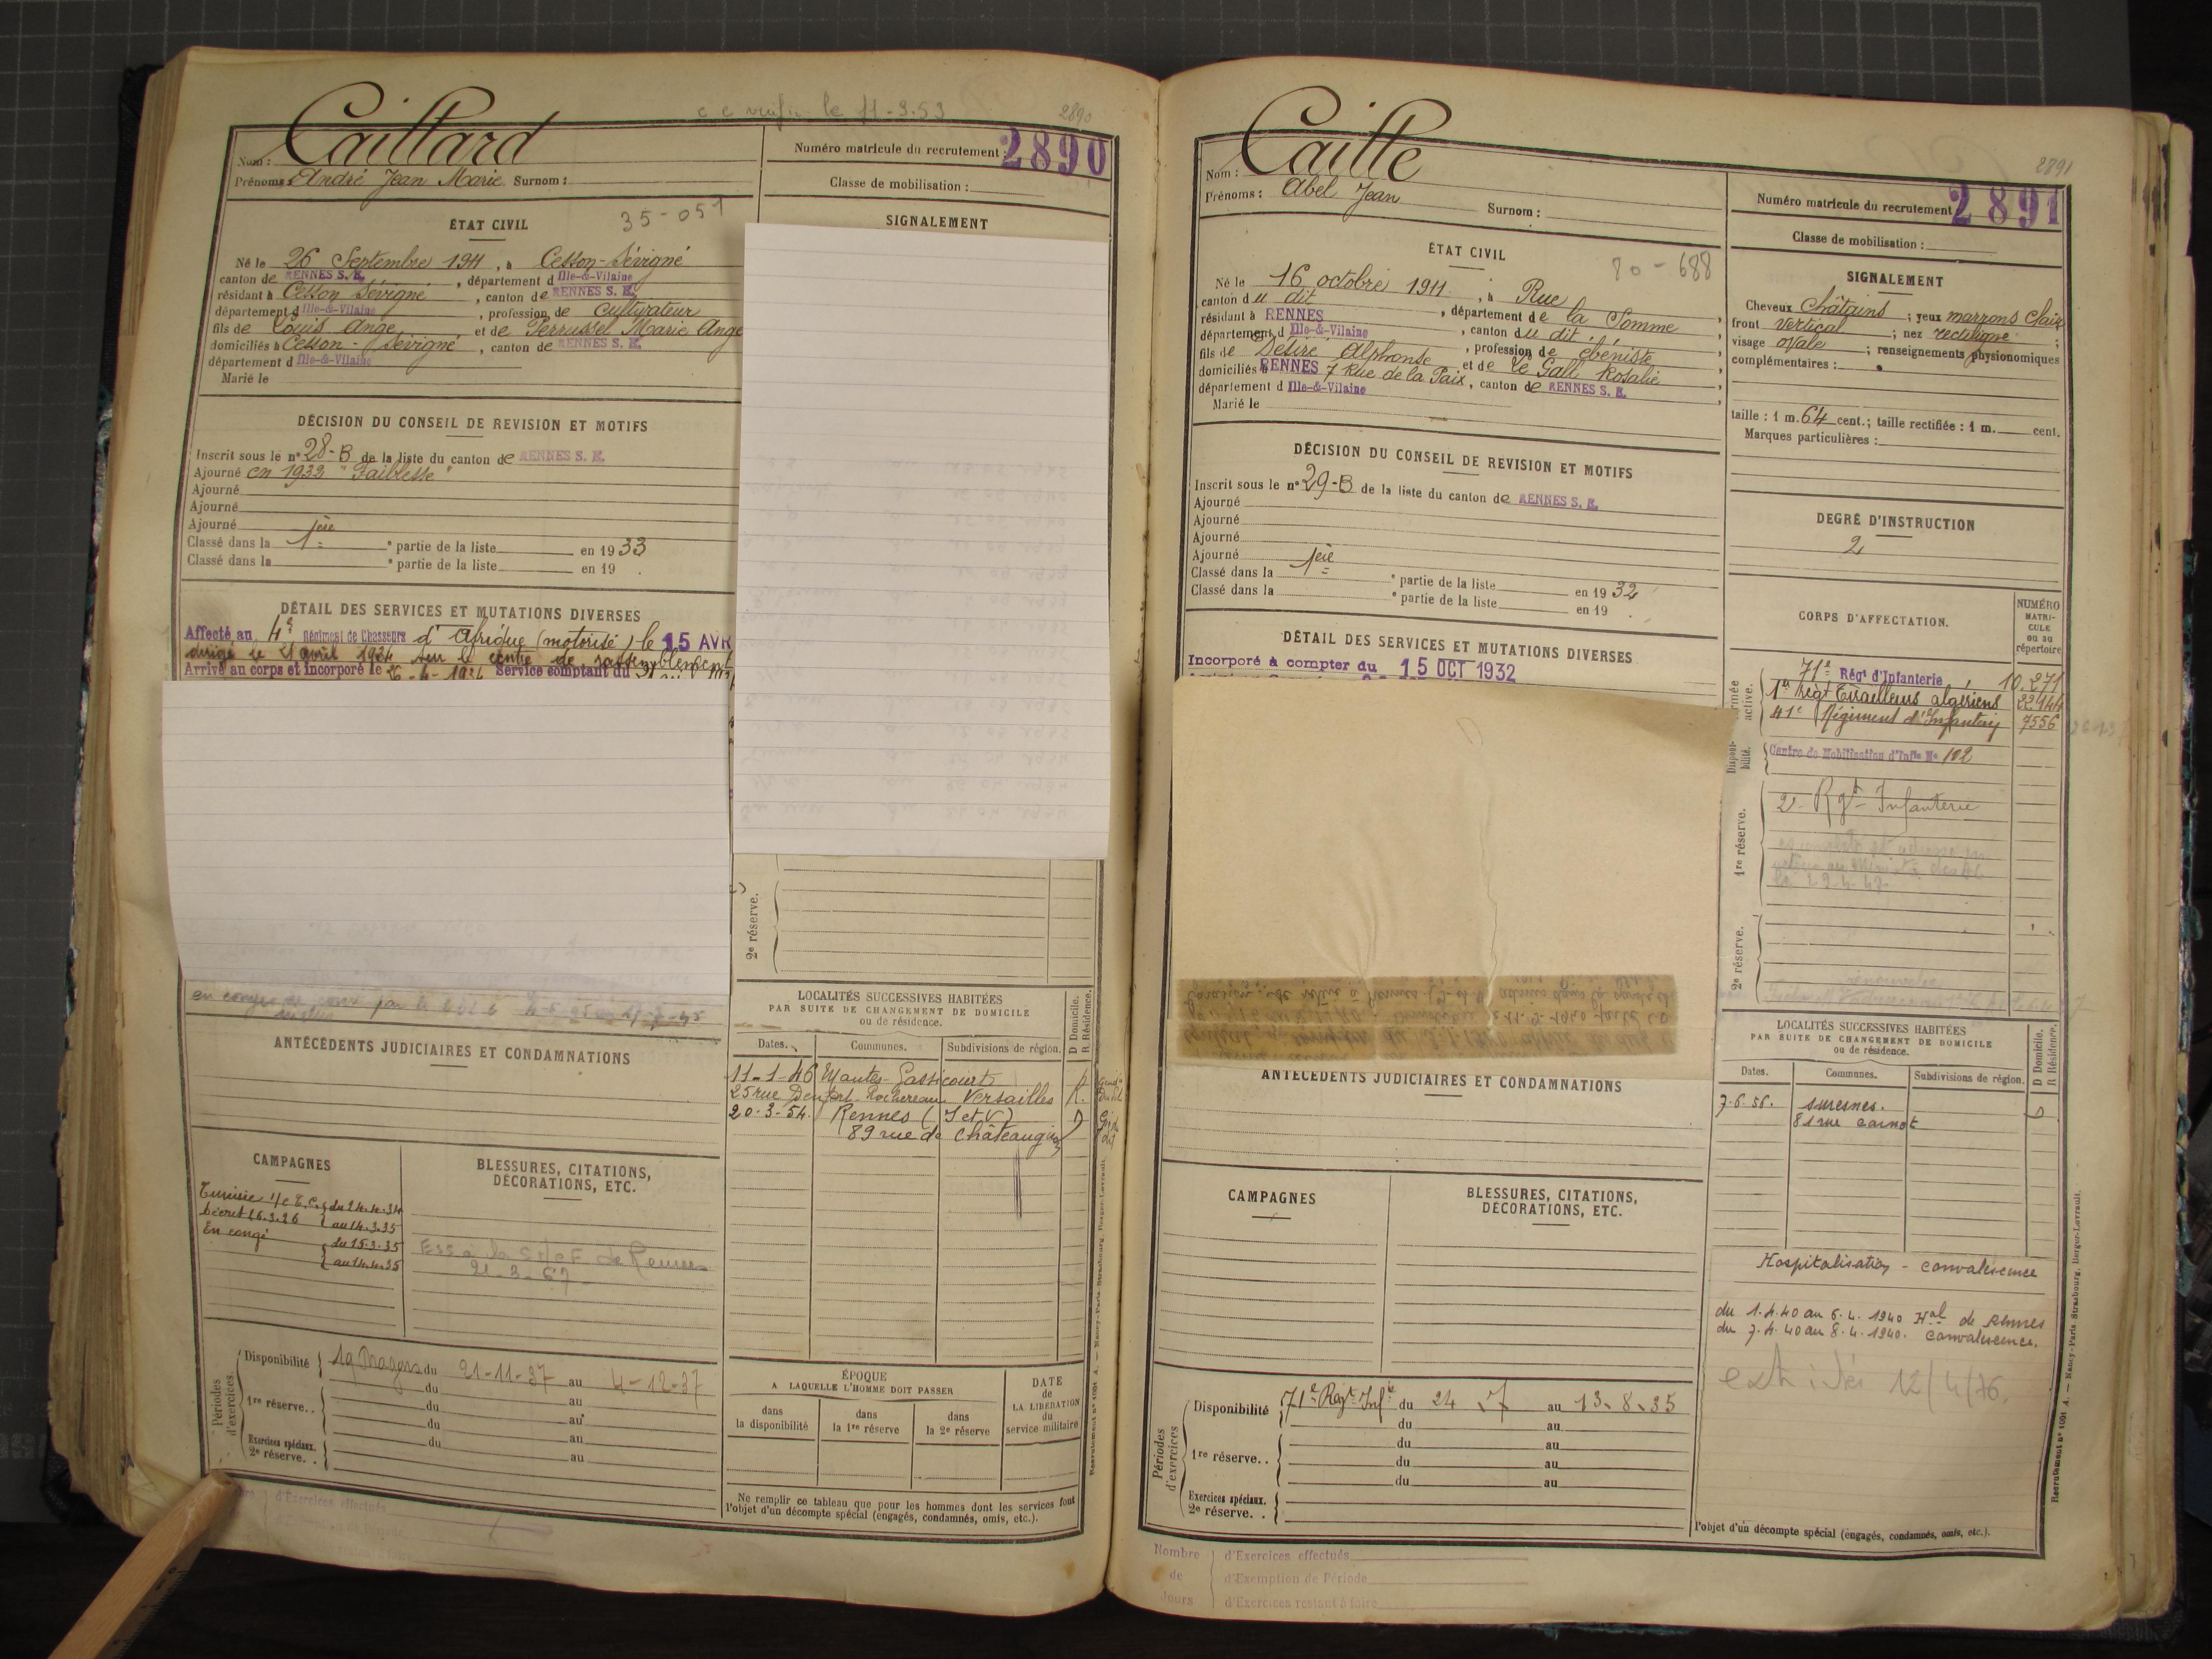 c c vérif. le 11-3-53
2890
Nom : Caillard
Prénoms : André Jean Marie Surnom :
Numéro matricule du recrutement : 2890
Classe de mobilisation :
ÉTAT CIVIL
35-051
SIGNALEMENT
Né le 26 Septembre 1911, à Cesson-Sévigné
canton de RENNES S. E., département d Ille-&-Vilaine
résidant à Cesson Sévigné, canton de RENNES S. E.
département d Ille-&-Vilaine, profession de cultivateur
fils de Louis Ange et de Perrussel Marie Ange
domiciliés à Cesson-Sévigné, canton de RENNES S. E.
département d Ille-&-Vilaine
Marié le
DÉCISION DU CONSEIL DE REVISION ET MOTIFS
Inscrit sous le n° 28-B de la liste du canton de RENNES S. E.
Ajourné en 1932 "Faiblesse"
Ajourné
Ajourné
Ajourné
Classé dans la 1ère e partie de la liste en 1933
Classé dans la e partie de la liste en 19 .
DÉTAIL DES SERVICES ET MUTATIONS DIVERSES
Affecté au 4e Régiment de Chasseurs d'Afrique (motorisé) le 15 AVR
dirigé le 21 avril 1934 sur le centre de rassemblement
Arrivé au corps et incorporé le 26-4-1934 Service comptant du
2e réserve.
ANTÉCÉDENTS JUDICIAIRES ET CONDAMNATIONS
LOCALITÉS SUCCESSIVES HABITÉES
PAR SUITE DE CHANGEMENT DE DOMICILE
ou de résidence.
D Domicile.
R Résidence.
Dates. Communes. Subdivisions de région.
11-1-46 Mantes-Gassicourt
25 rue Denfert Rochereau Versailles R.
20-3-54. Rennes (I et V) D
89 rue de Châteaugiron
CAMPAGNES
Tunisie 1/c T.C. du 24.4.34
Décret 16.3.26 au 14.3.35
En congé du 15.3.35
au 14.4.35
BLESSURES, CITATIONS,
DÉCORATIONS, ETC.
Périodes d'exercices.
Disponibilité 19 Dragons du 21-11-37 au 4-12-37
du au
1re réserve.. du au
du au
Exercices spéciaux. du au
2e réserve. .
ÉPOQUE
A LAQUELLE L'HOMME DOIT PASSER
dans la disponibilité
dans la 1re réserve
dans la 2e réserve
DATE de LA LIBÉRATION du service militaire
Ne remplir ce tableau que pour les hommes dont les services font
l'objet d'un décompte spécial (engagés, condamnés, omis, etc.).
d'Exercices effectués
Recrutement n° 1001 A. — Nancy-Paris-Strasbourg, Berger-Levrault.
2891
Nom : Caille
Prénoms : Abel Jean Surnom :
Numéro matricule du recrutement 2891
Classe de mobilisation :
ÉTAT CIVIL
80-688
Né le 16 octobre 1911, à Rue
canton du dit, département de la Somme
résidant à RENNES, canton du dit
département d Ille-&-Vilaine, profession de ébéniste
fils de Désiré Alphonse et de Le Gall Rosalie
domiciliés à RENNES 7 Rue de la Paix, canton de RENNES S. E.
département d Ille-&-Vilaine
Marié le
SIGNALEMENT
Cheveux châtains ; yeux marrons clair
front vertical ; nez rectiligne ;
visage ovale ; renseignements physionomiques
complémentaires :
taille : 1 m. 64 cent.; taille rectifiée : 1 m. cent.
Marques particulières :
DÉCISION DU CONSEIL DE REVISION ET MOTIFS
Inscrit sous le n° 29-B de la liste du canton de RENNES S. E.
Ajourné
Ajourné
Ajourné
Ajourné
Classé dans la 1ère e partie de la liste en 1932
Classé dans la e partie de la liste en 19 .
DEGRÉ D'INSTRUCTION
2
DÉTAIL DES SERVICES ET MUTATIONS DIVERSES
Incorporé à compter du 15 OCT 1932
CORPS D'AFFECTATION.
NUMÉRO MATRICULE ou au répertoire
71e Régt d'Infanterie 10.271
1er Régt Tirailleurs algériens 22944
41e Régiment d'Infanterie 7556
Centre de Mobilisation d'Infie No 102
2e Rgt Infanterie
active.
1re réserve.
2e réserve.
ANTÉCÉDENTS JUDICIAIRES ET CONDAMNATIONS
LOCALITÉS SUCCESSIVES HABITÉES
PAR SUITE DE CHANGEMENT DE DOMICILE
ou de résidence.
D Domicile.
R Résidence.
Dates. Communes. Subdivisions de région.
7.6.56. Suresnes. D
81 rue Carnot
CAMPAGNES
BLESSURES, CITATIONS,
DÉCORATIONS, ETC.
Hospitalisation - convalescence
du 1.4.40 au 6.4.1940 Hal de Rennes
du 7.4.40 au 8.4.1940. convalescence.
12/4/76.
Périodes d'exercices
Disponibilité 71e Regt Infie du 24 7 au 13-8-35
du au
1re réserve.. du au
du au
du au
Exercices spéciaux.
2e réserve. .
l'objet d'un décompte spécial (engagés, condamnés, omis, etc.).
Nombre de Jours
d'Exercices effectués
d'Exemption de Période
d'Exercices restant à faire
Recrutement n° 1001 A. — Nancy-Paris Strasbourg, Berger-Levrault.